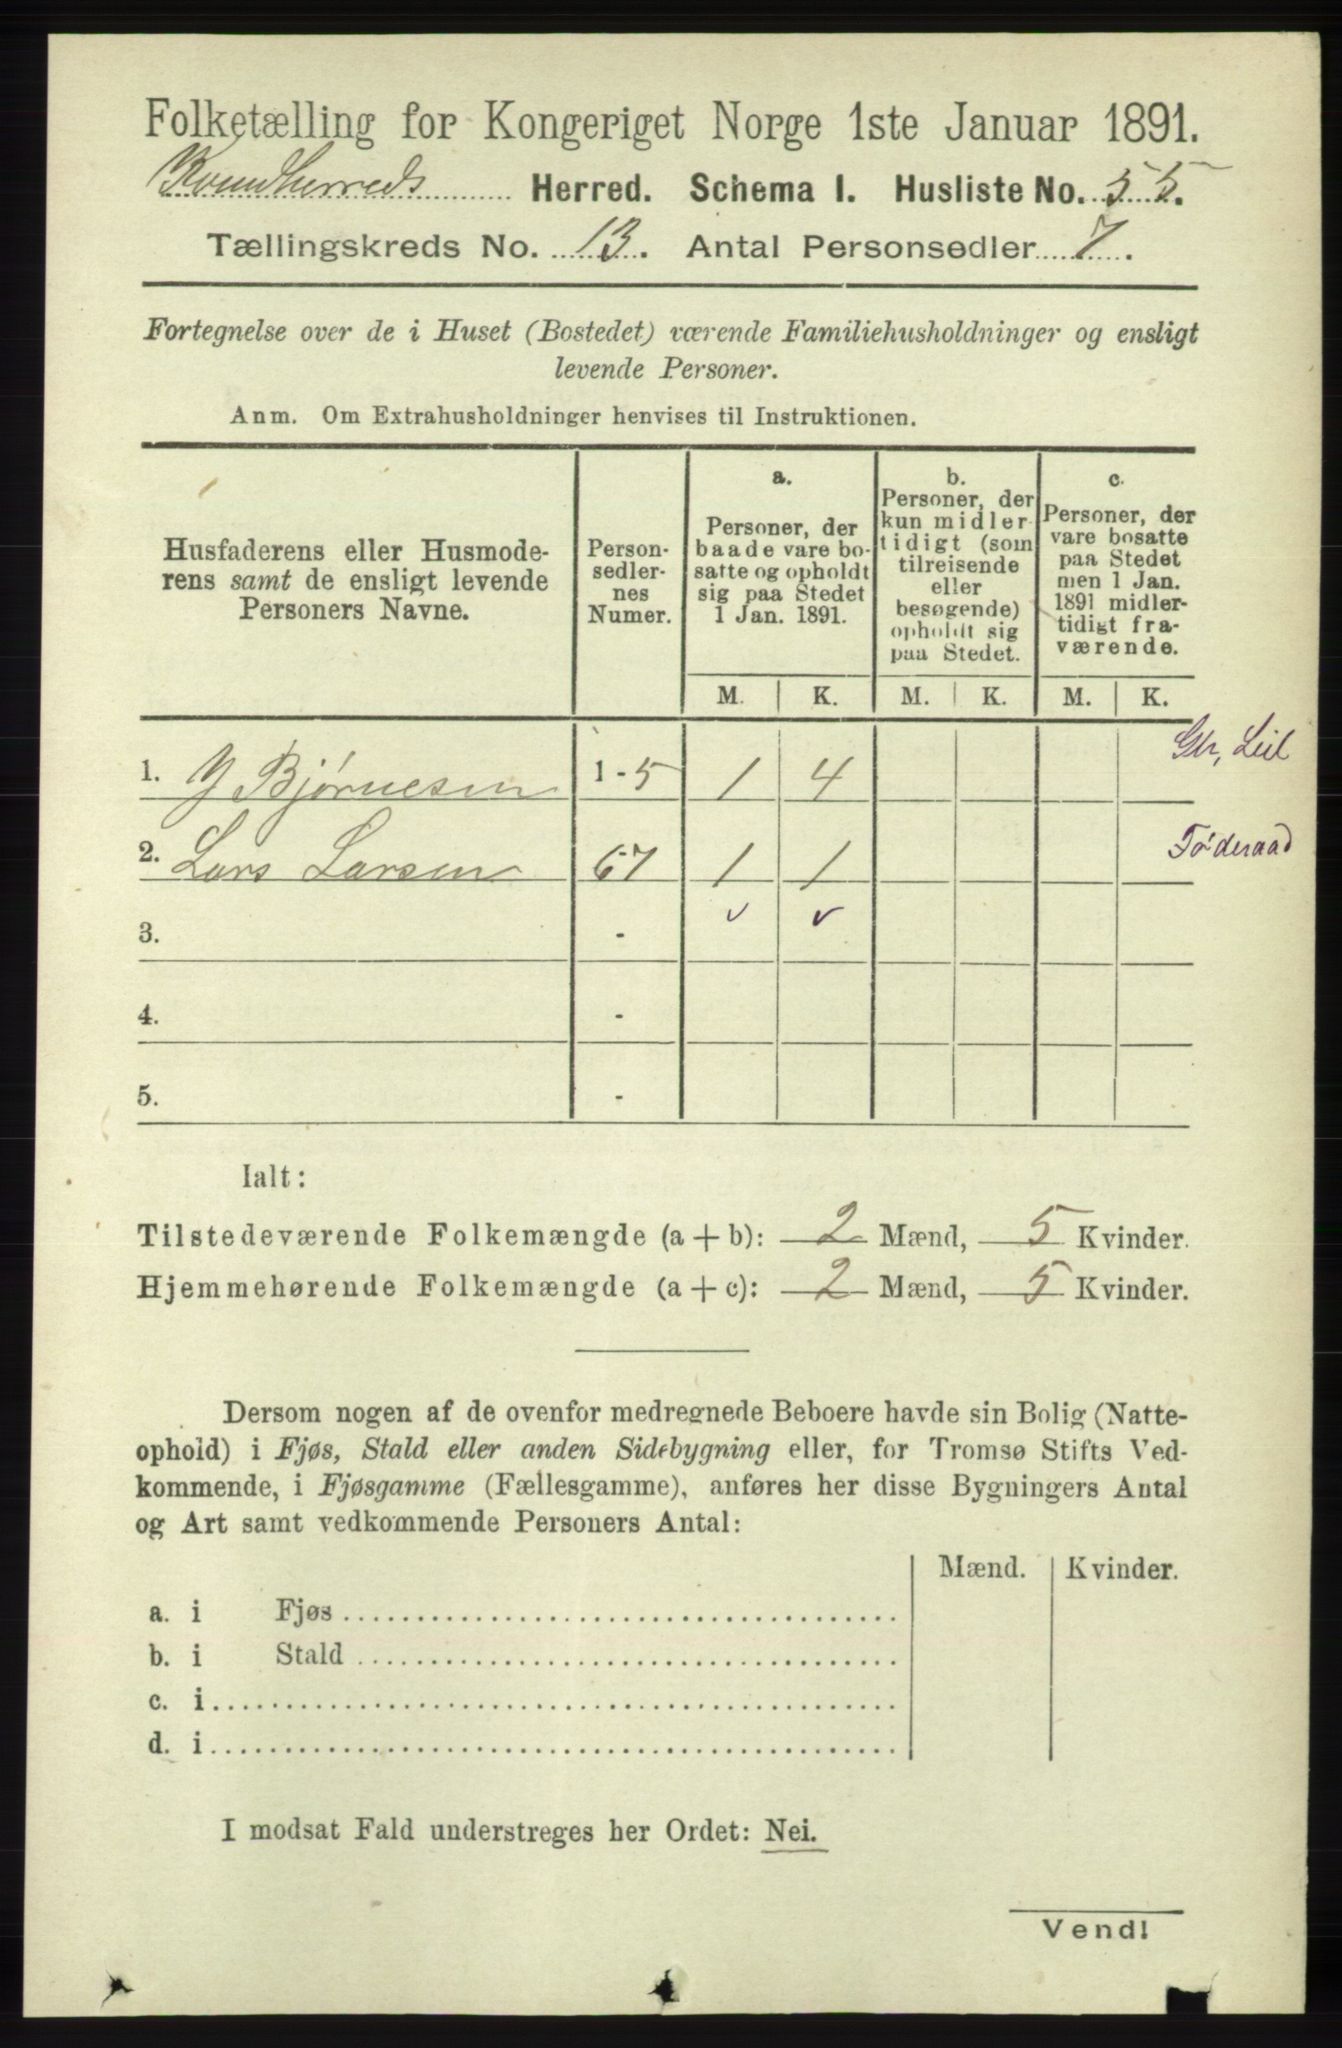 Folketælling for Kongeriget Norge 1ste Januar 1891.
Kvindherreds Herred. Schema I. Husliste No. 55.
Tællingskreds No. 13. Antal Personsedler 7.
Fortegnelse over de i Huset (Bostedet) værende Familiehusholdninger og ensligt
levende Personer.
Anm. Om Extrahusholdninger henvises til Instruktionen.
Husfaderens eller Husmode-
rens samt de ensligt levende
Personers Navne.
Person-
sedler-
nes
Numer.
a.
Personer, der
baade vare bo-
satte og opholdt
sig paa Stedet
1 Jan. 1891.
b.
Personer, der
kun midler
tidigt (som
tilreisende
eller
besøgende)
opholdt sig
paa Stedet.
c.
Personer, der
vare bosatte
paa Stedet
men 1 Jan.
1891 midler-
tidigt fra-
værende.
M. K. M. K. M. K.
1. J Bjørnesen 1-5 1 4 Gbr, Leil
2. Lars Larsen 67 1 1 Føderaad
3. - v v
4. -
5. -
Ialt:
Tilstedeværende Folkemængde (a + b): 2 Mænd, 5 Kvinder.
Hjemmehørende Folkemængde (a + c): 2 Mænd, 5 Kvinder.
Dersom nogen af de ovenfor medregnede Beboere havde sin Bolig (Natte-
ophold) i Fjøs, Stald eller anden Sidebygning eller, for Tromsø Stifts Ved-
kommende, i Fjøsgamme (Fællesgamme), anføres her disse Bygningers Antal
og Art samt vedkommende Personers Antal:
Mænd. Kvinder.
a. i Fjøs
b. i Stald
c. i
d. i
I modsat Fald understreges her Ordet: Nei.
Vend!